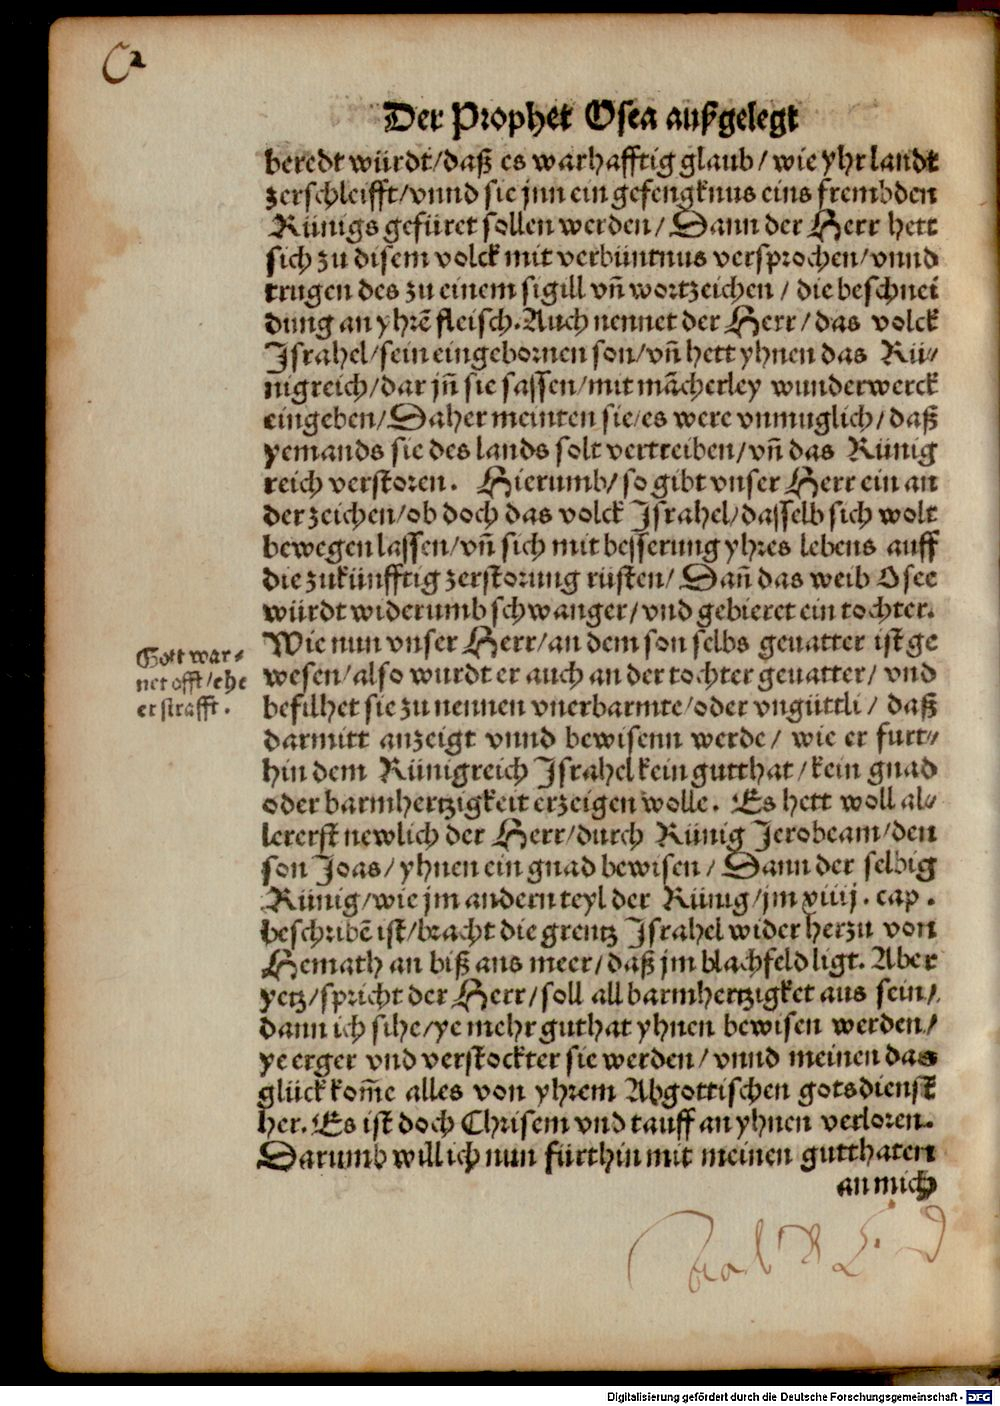 C2
Der Prophet Osea außgelegt
beredt würdt/daß es warhafftig glaub/wie yhr landt
zerschleifft/vnnd sie jnn ein gefengknus eins frembden
Künigs gefüret sollen werden/Dann der Herr hett
sich zu disem volck mit verbüntnus versprochen/vnnd
trugen des zu einem sigill vñ wortzeichen/die beschnei
dung an yhrẽ fleisch. Auch nennet der Herr/das volck
Jsrahel/sein eingebornen son/vñ hett yhnen das Kü-
nigreich/dar jñ sie sassen/mit mãcherley wunderwerck
eingeben/Daher meinten sie/es were vnmuglich/daß
yemands sie des lands solt vertreiben/vñ das Künig
reich verstoren. Hierumb/so gibt vnser Herr ein an
der zeichen/ob doch das volck Jsrahel/dasselb sich wolt
bewegen lassen/vñ sich mit besserung yhres lebens auff
die zukünfftig zerstorung rüsten/Dañ das weib Osee
würdt widerumb schwanger/vnd gebieret ein tochter.
Wie nun vnser Herr/an dem son selbs geuatter ist ge
Gott war-
net offt/ehe
er strafft.
wesen/also wurdt er auch an der tochter geuatter/vnd
befilhet sie zu nennen vnerbarmte/oder vngüttli/daß
darmitt anzeigt vnnd bewisenn werde/wie er furt-
hin dem Künigreich Jsrahel kein gutthat/kein gnad
oder barmhertzigkeit erzeigen wolle. Es hett woll al-
lererst newlich der Herr/durch Künig Jerobeam/den
son Joas/yhnen ein gnad bewisen/Dann der selbig
Künig/wie jm andern teyl der Künig/jm xiiij. cap.
beschribẽ ist/bracht die grentz Jsrahel wider herzu von
Hemath an biß ans meer/daß jm blachfeld ligt. Aber
yetz/spricht der Herr/soll all barmhertzigket aus sein/
dann ich sihe/ye mehr guthat yhnen bewisen werden/
ye erger vnd verstockter sie werden/vnnd meinen das
glück kom̃e alles von yhrem Abgottischen gotsdienst
her. Es ist doch Chrisem vnd tauff an yhnen verloren.
Darumb will ich nun fürthin mit meinen gutthaten
an mich
Digitalisierung gefördert durch die Deutsche Forschungsgemeinschaft - DFG